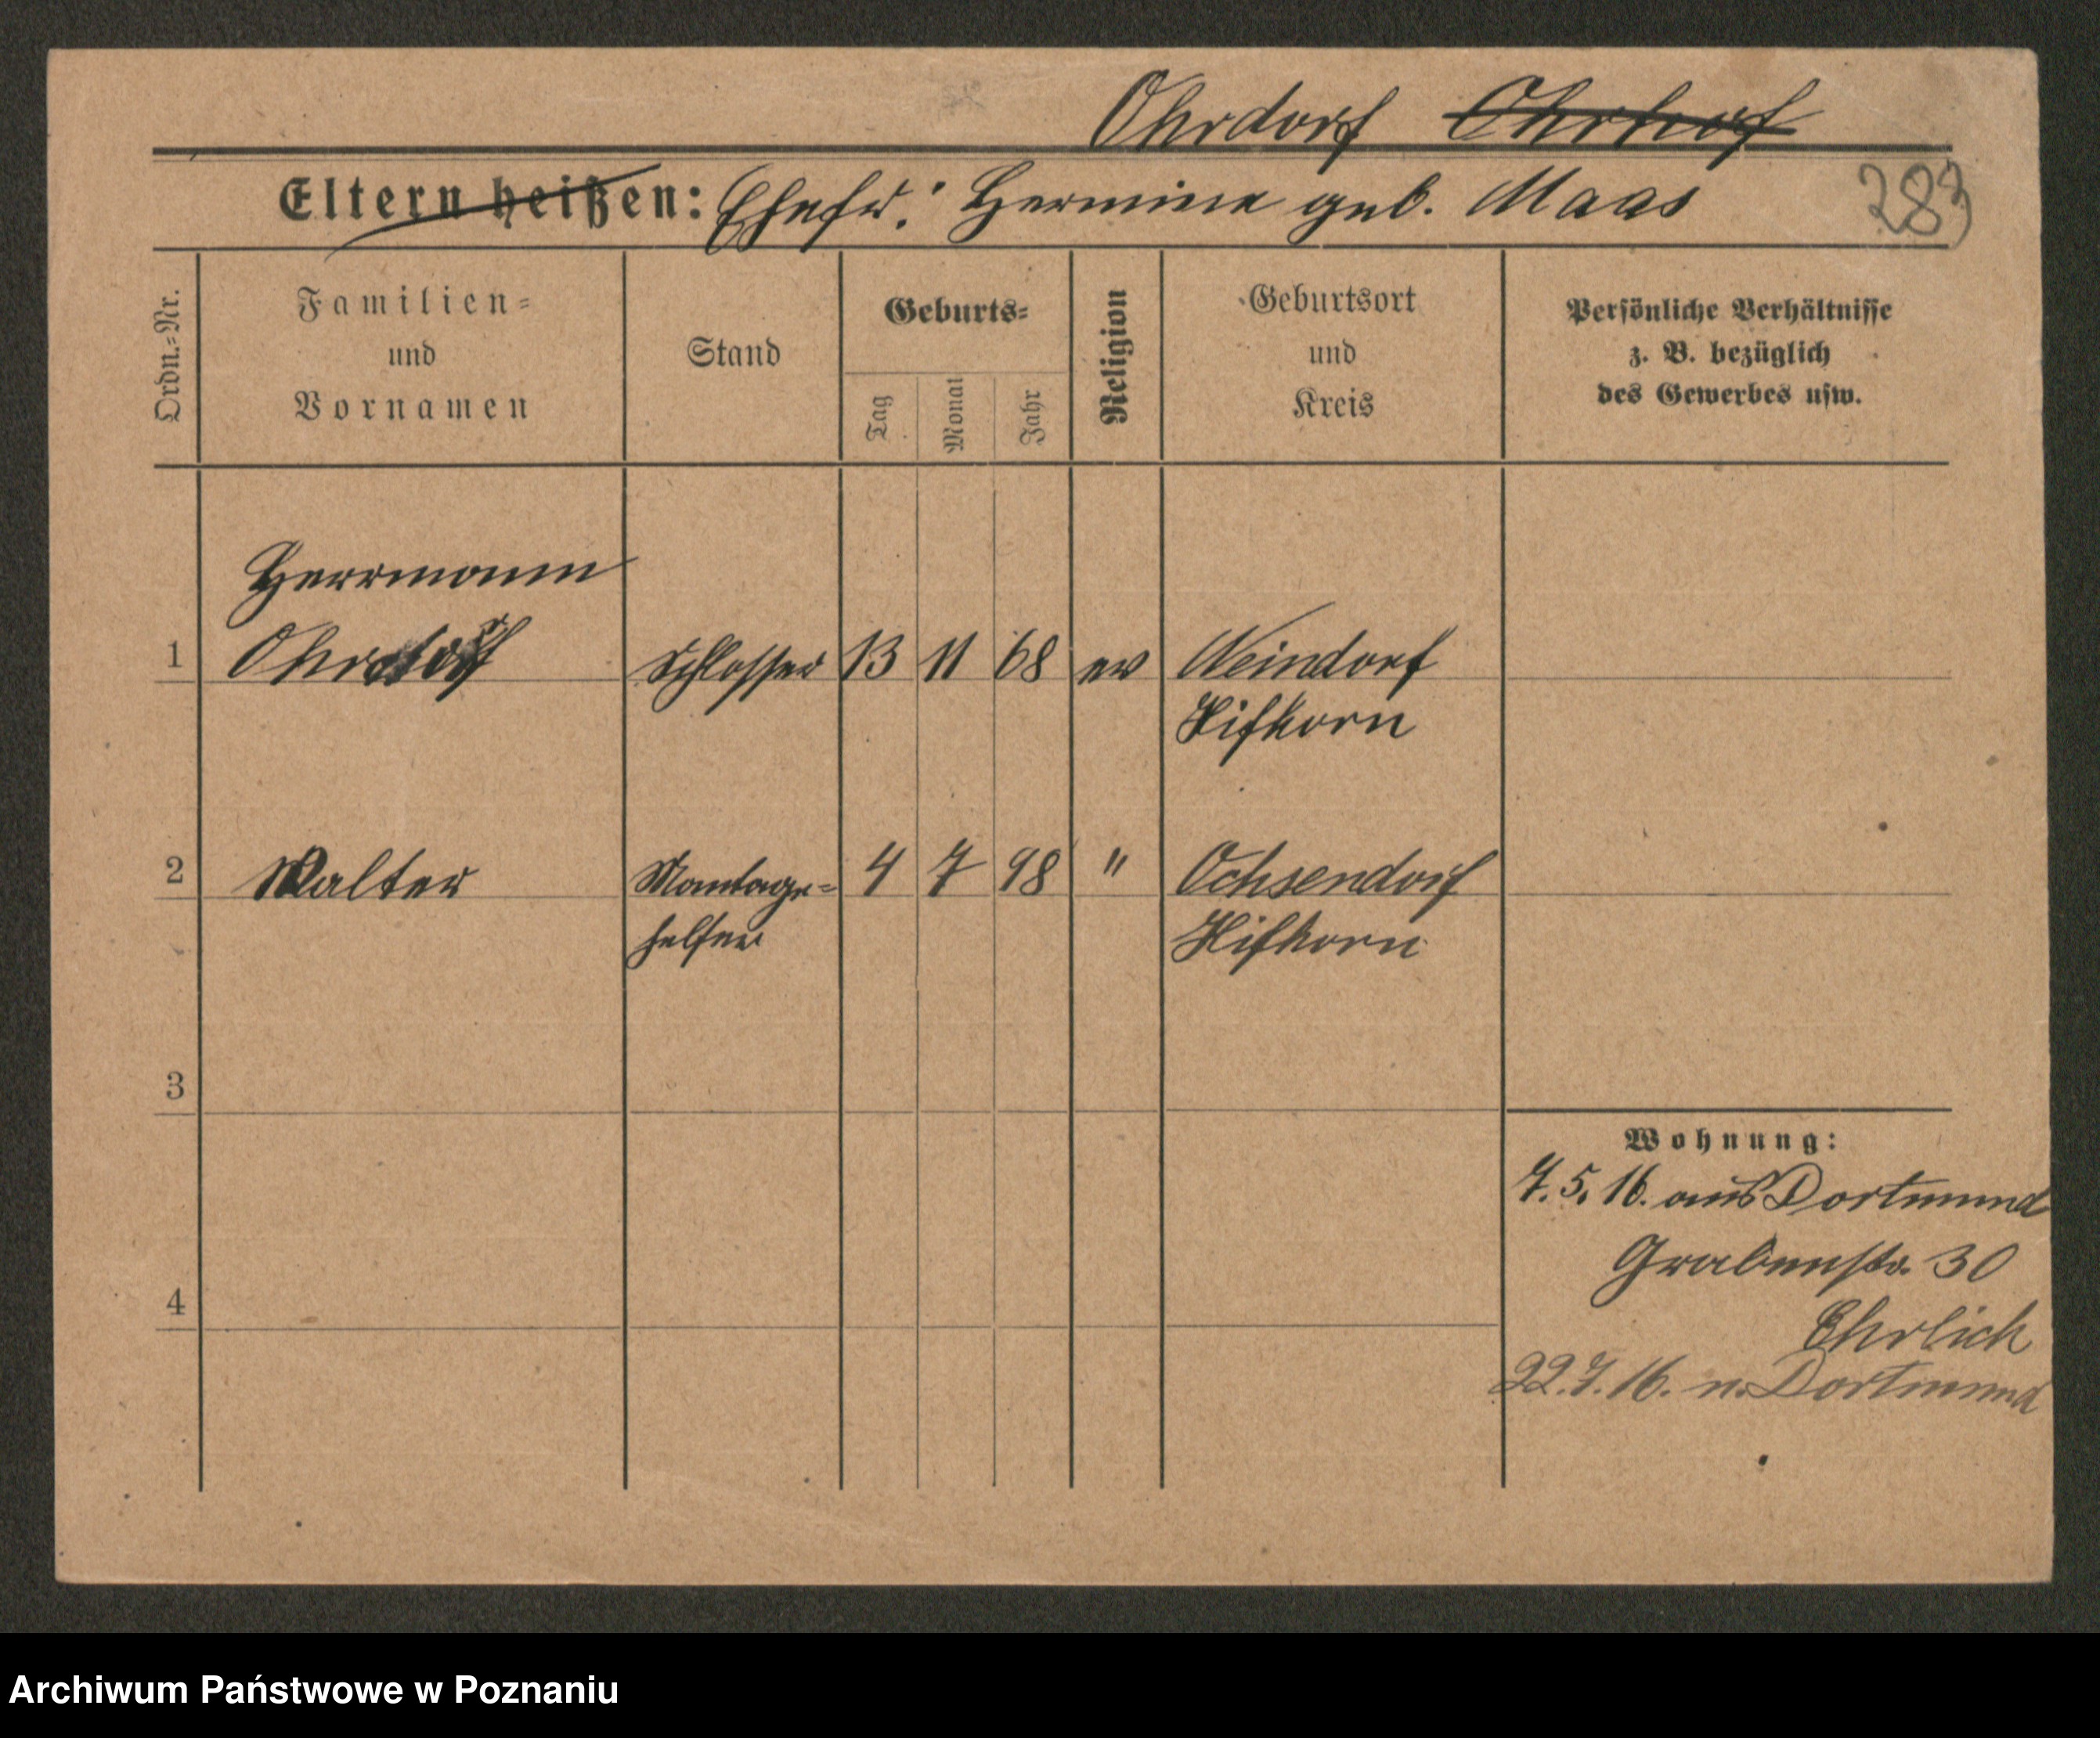 Ohrdorf Ohrhof
Eltern heißen: Ehefr: Hermine geb. Maas
283
Ordn.-Nr.
Familien-
und
Vornamen
Stand
Geburts-
Tag
Monat
Jahr
Religion
Geburtsort
und
Kreis
Persönliche Verhältnisse
z. B. bezüglich
des Gewerbes usw.
Herrmann
1 Ohrdorf Schlosser 13 11 68 ev Weindorf
Hifhorn
2 Walter Montage- 4 7 98 " Ochsendorf
helfer Hifhorn
3
Wohnung:
7.5.16. aus Dortmund
Grabenstr. 30
4
Ehrlich
22.7.16. n. Dortmund
Archiwum Państwowe w Poznaniu